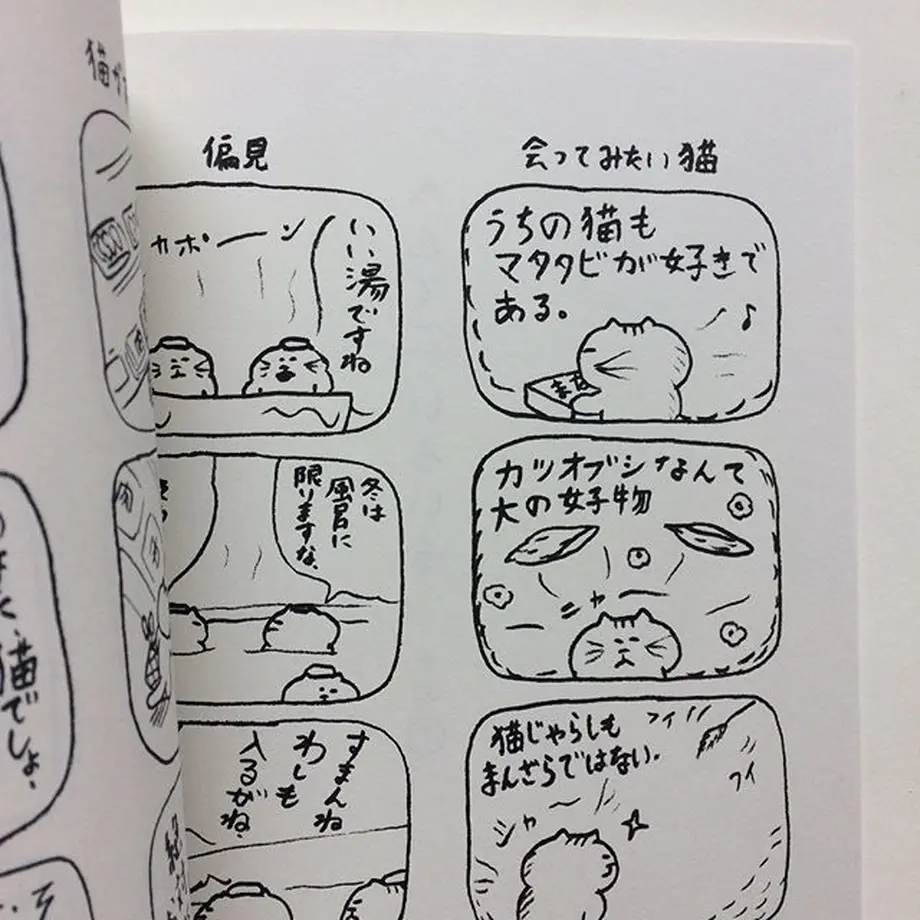 会ってみたい猫
うちの猫も
マタタビが好きで
ある。
♪
カツオブシなんて
大の好物
シャ
猫じゃらしも
まんざらではない。
フイ
フイ
シャ
偏見
いい湯ですね
カポーン
冬は
風呂に
限りますな。
すまんね
わしも
入るがね。
猫が
猫でしょ。